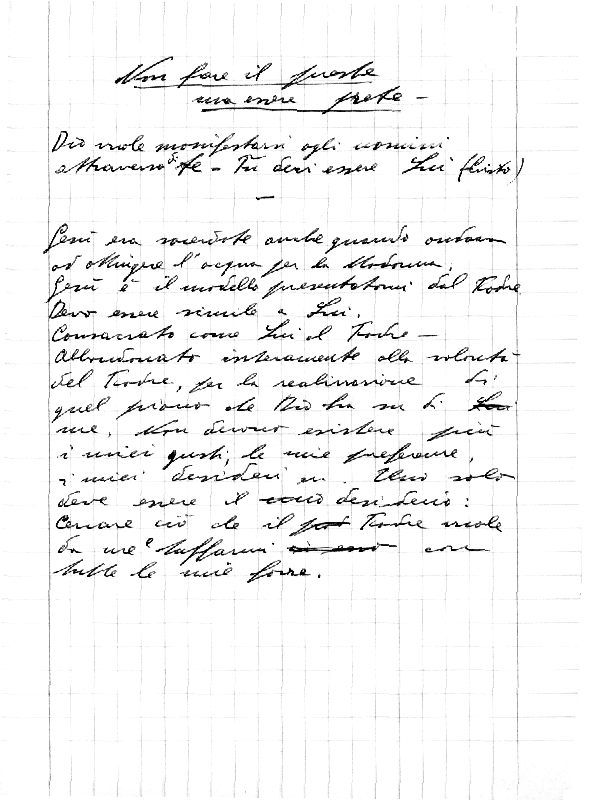 Non fare il prete
ma essere prete -
Dio vuole manifestarsi agli uomini
attraverso di te - Tu devi essere Lui (Cristo)
-
Gesù era sacerdote anche quando andava
ad attingere l'acqua per la Madonna.
Gesù è il modello presentatomi dal Padre
Devo essere simile a Lui.
Consacrato come Lui al Padre -
Abbandonato interamente alla volontà
del Padre, per la realizzazione di
quel piano che Dio ha su di Lui
me. Non devono esistere più
i miei gusti, le mie preferenze,
i miei desideri ... Uno solo
deve essere il mio desiderio:
Cercare ciò che il Padre vuole
da me e tuffarmi con
tutte le mie forze.